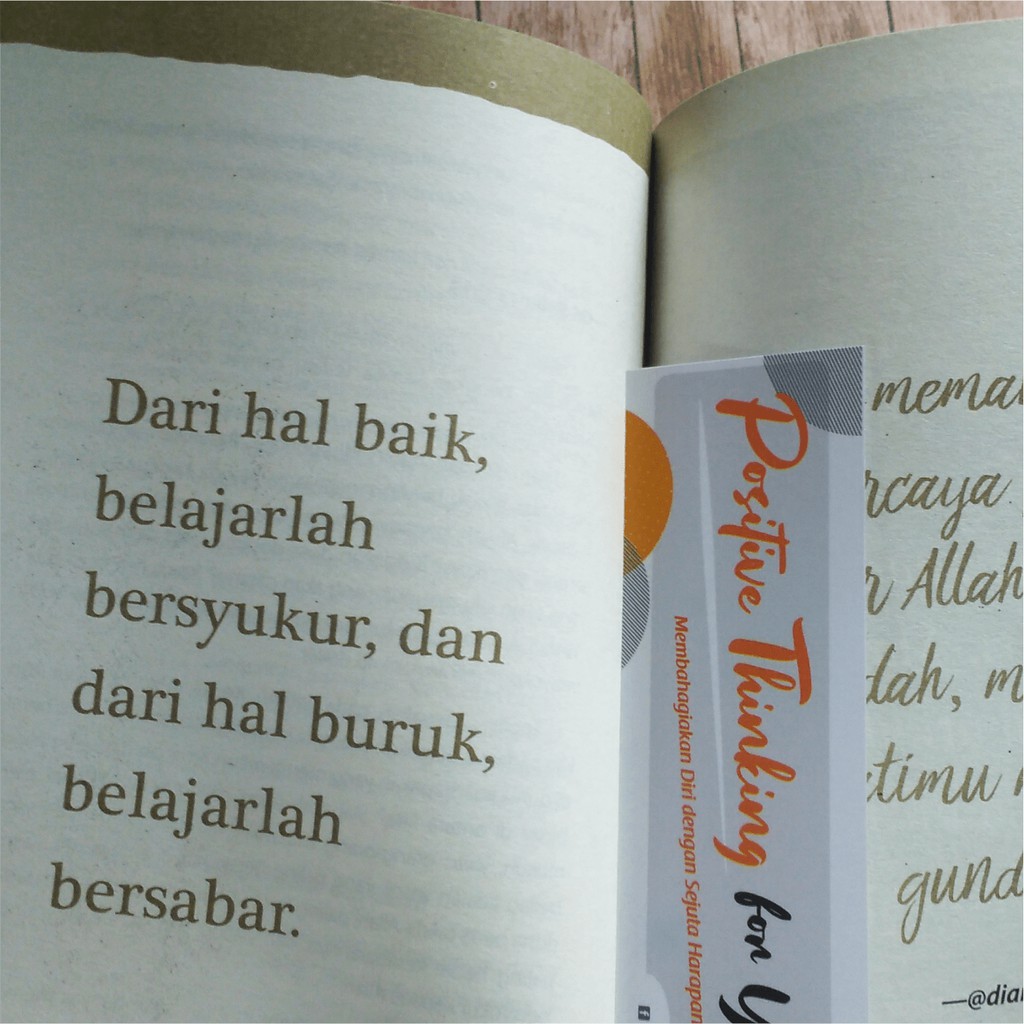 Dari hal baik,
belajarlah
bersyukur, dan
dari hal buruk,
belajarlah
bersabar.
Positive Thinking for
Membahagiakan Diri dengan Sejuta Harapan
Allah